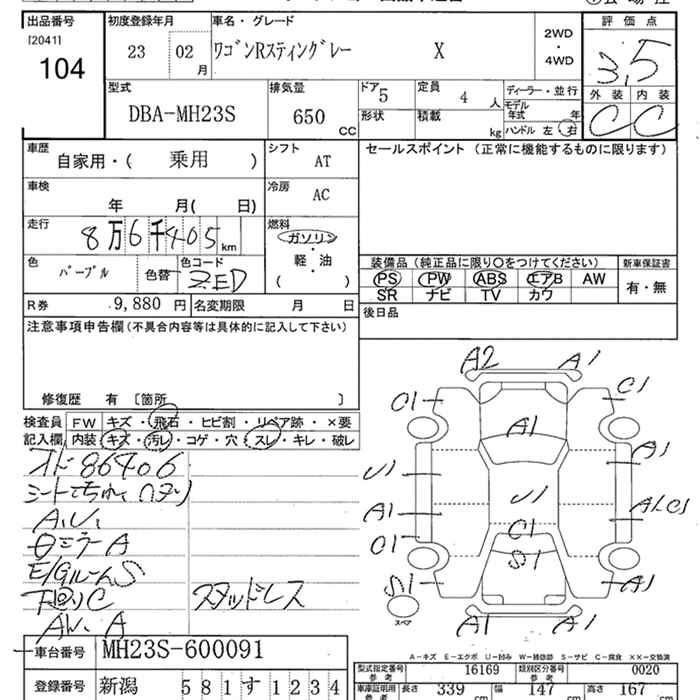 出品番号 初度登録年月 車名・グレード 評価点
[2041]
104
23 02 月 ワゴンRスティングレー X
2WD
・
4WD
3.5
外装 内装
C C
型式 排気量 ドア 5 定員 4 人 ディーラー・並行
DBA-MH23S 650 CC
形状 積載 kg
モデル年式 年
ハンドル 左 右
車歴 自家用・( 乗用 )
シフト AT
セールスポイント (正常に機能するものに限ります)
車検 年 月( 日)
冷房 AC
走行 8万6千405 km
燃料 ガソリン
軽・油
( )
色 パープル 色替 色コード ZED
装備品 (純正品に限り〇をつけてください) 新車保証書
PS PW ABS エアB AW 有・無
SR ナビ TV カワ
R券 9,880 円 名変期限 月 日
後日品
注意事項申告欄 (不具合内容等は具体的に記入して下さい)
修復歴 有 〔箇所 〕
検査員 FW キズ・飛石・ヒビ割・リペア跡・×要
記入欄 内装 キズ・汚レ・コゲ・穴・スレ・キレ・破レ
オド86406
A.U.
ミラーA
E/GルームS
下回りC スタッドレス
AW.A
A2 A1
C1 C1
A1
A1
U1 U1
A1 A1C1
C1 C1
S1
S1 A1
スペア
A1 A1
A-キズ E-エクボ U-凹み W-補修跡 S-サビ C-腐食 ××-交換済
車台番号 MH23S-600091
型式指定番号 参考 16169 類別区分番号 参考 0020
登録番号 新潟 581す1234
車庫証明用 参考 長さ 339 cm 幅 147 cm 高さ 167 cm